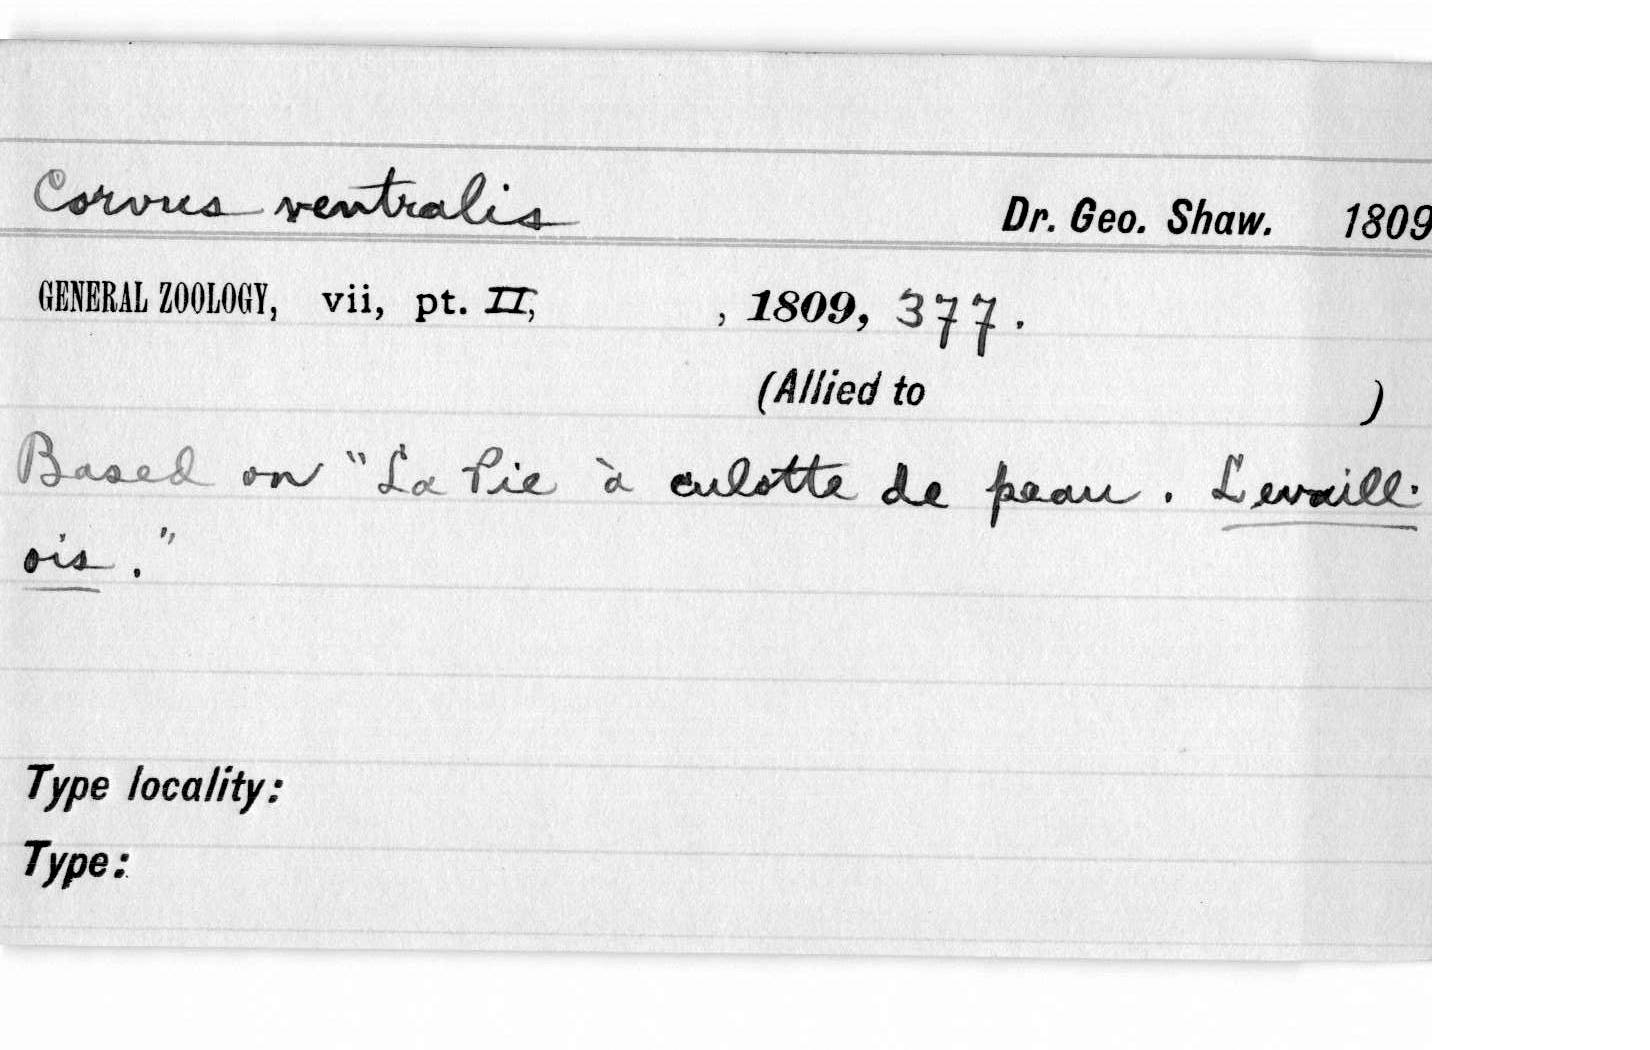 Corvus ventralis Dr. Geo. Shaw. 1809
GENERAL ZOOLOGY, vii, pt. II, , 1809, 377.
(Allied to )
Based on "La Pie à culotte de peau. Levaill.
ois."
Type locality:
Type: